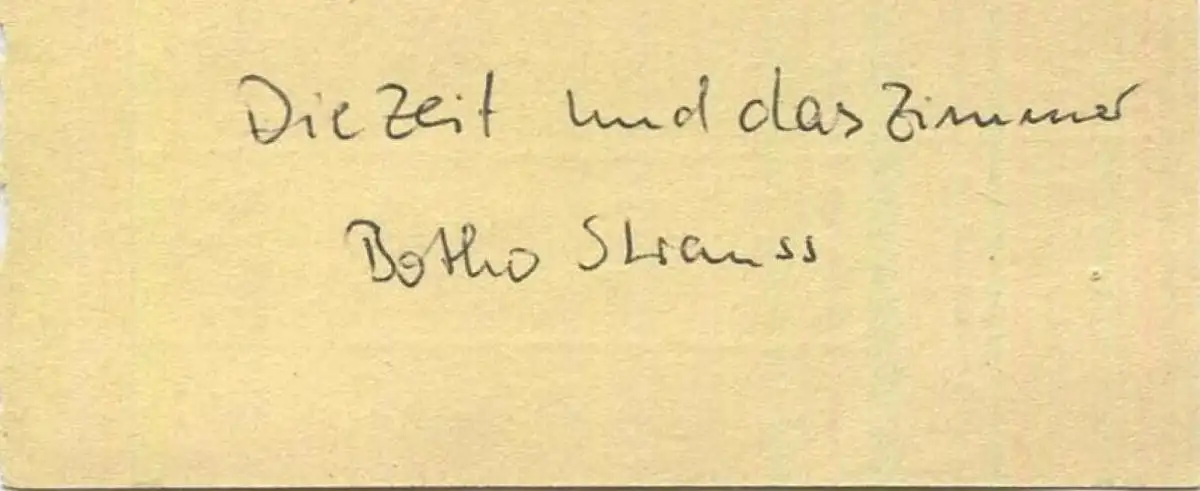 Die Zeit und das Zimmer
Botho Strauss